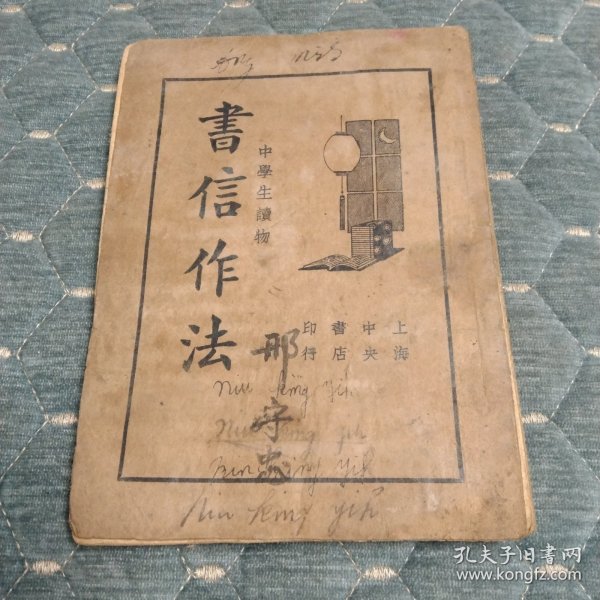 書信作法
中學生讀物
上海
中央
書店
印行
那守
niu king yih
Niu king yih
king yih
Niu king yih
孔夫子旧书网
www.kongfz.com